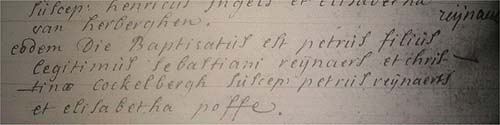 suscep: henricus Ingels et elisabetha
van herberghen.
reijnaer
eodem Die Baptisatus est petrus filius
legitimus sebastiani reijnaers et chris
tinæ cockelbergh suscep petrus reijnaerts
et elisabetha poffe.